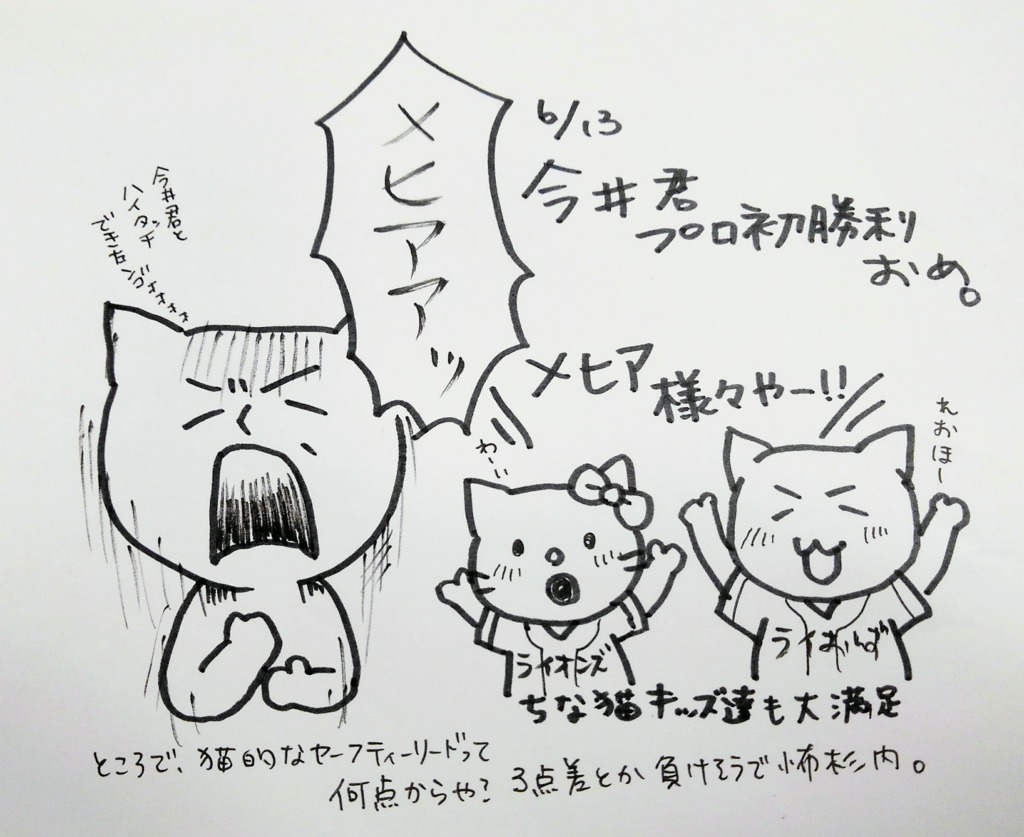 6/13
今井君
プロ初勝利
おめ。
メヒアアッ
今井君と
ハイタッチ
できたンゴォォォォ
メヒア
様々やー!!
わーい
れおほー
ライオンズ
ちな猫キッズ達も大満足
ところで、猫的なセーフティーリードって
何点からや? 3点差とか負けそうで怖杉内。